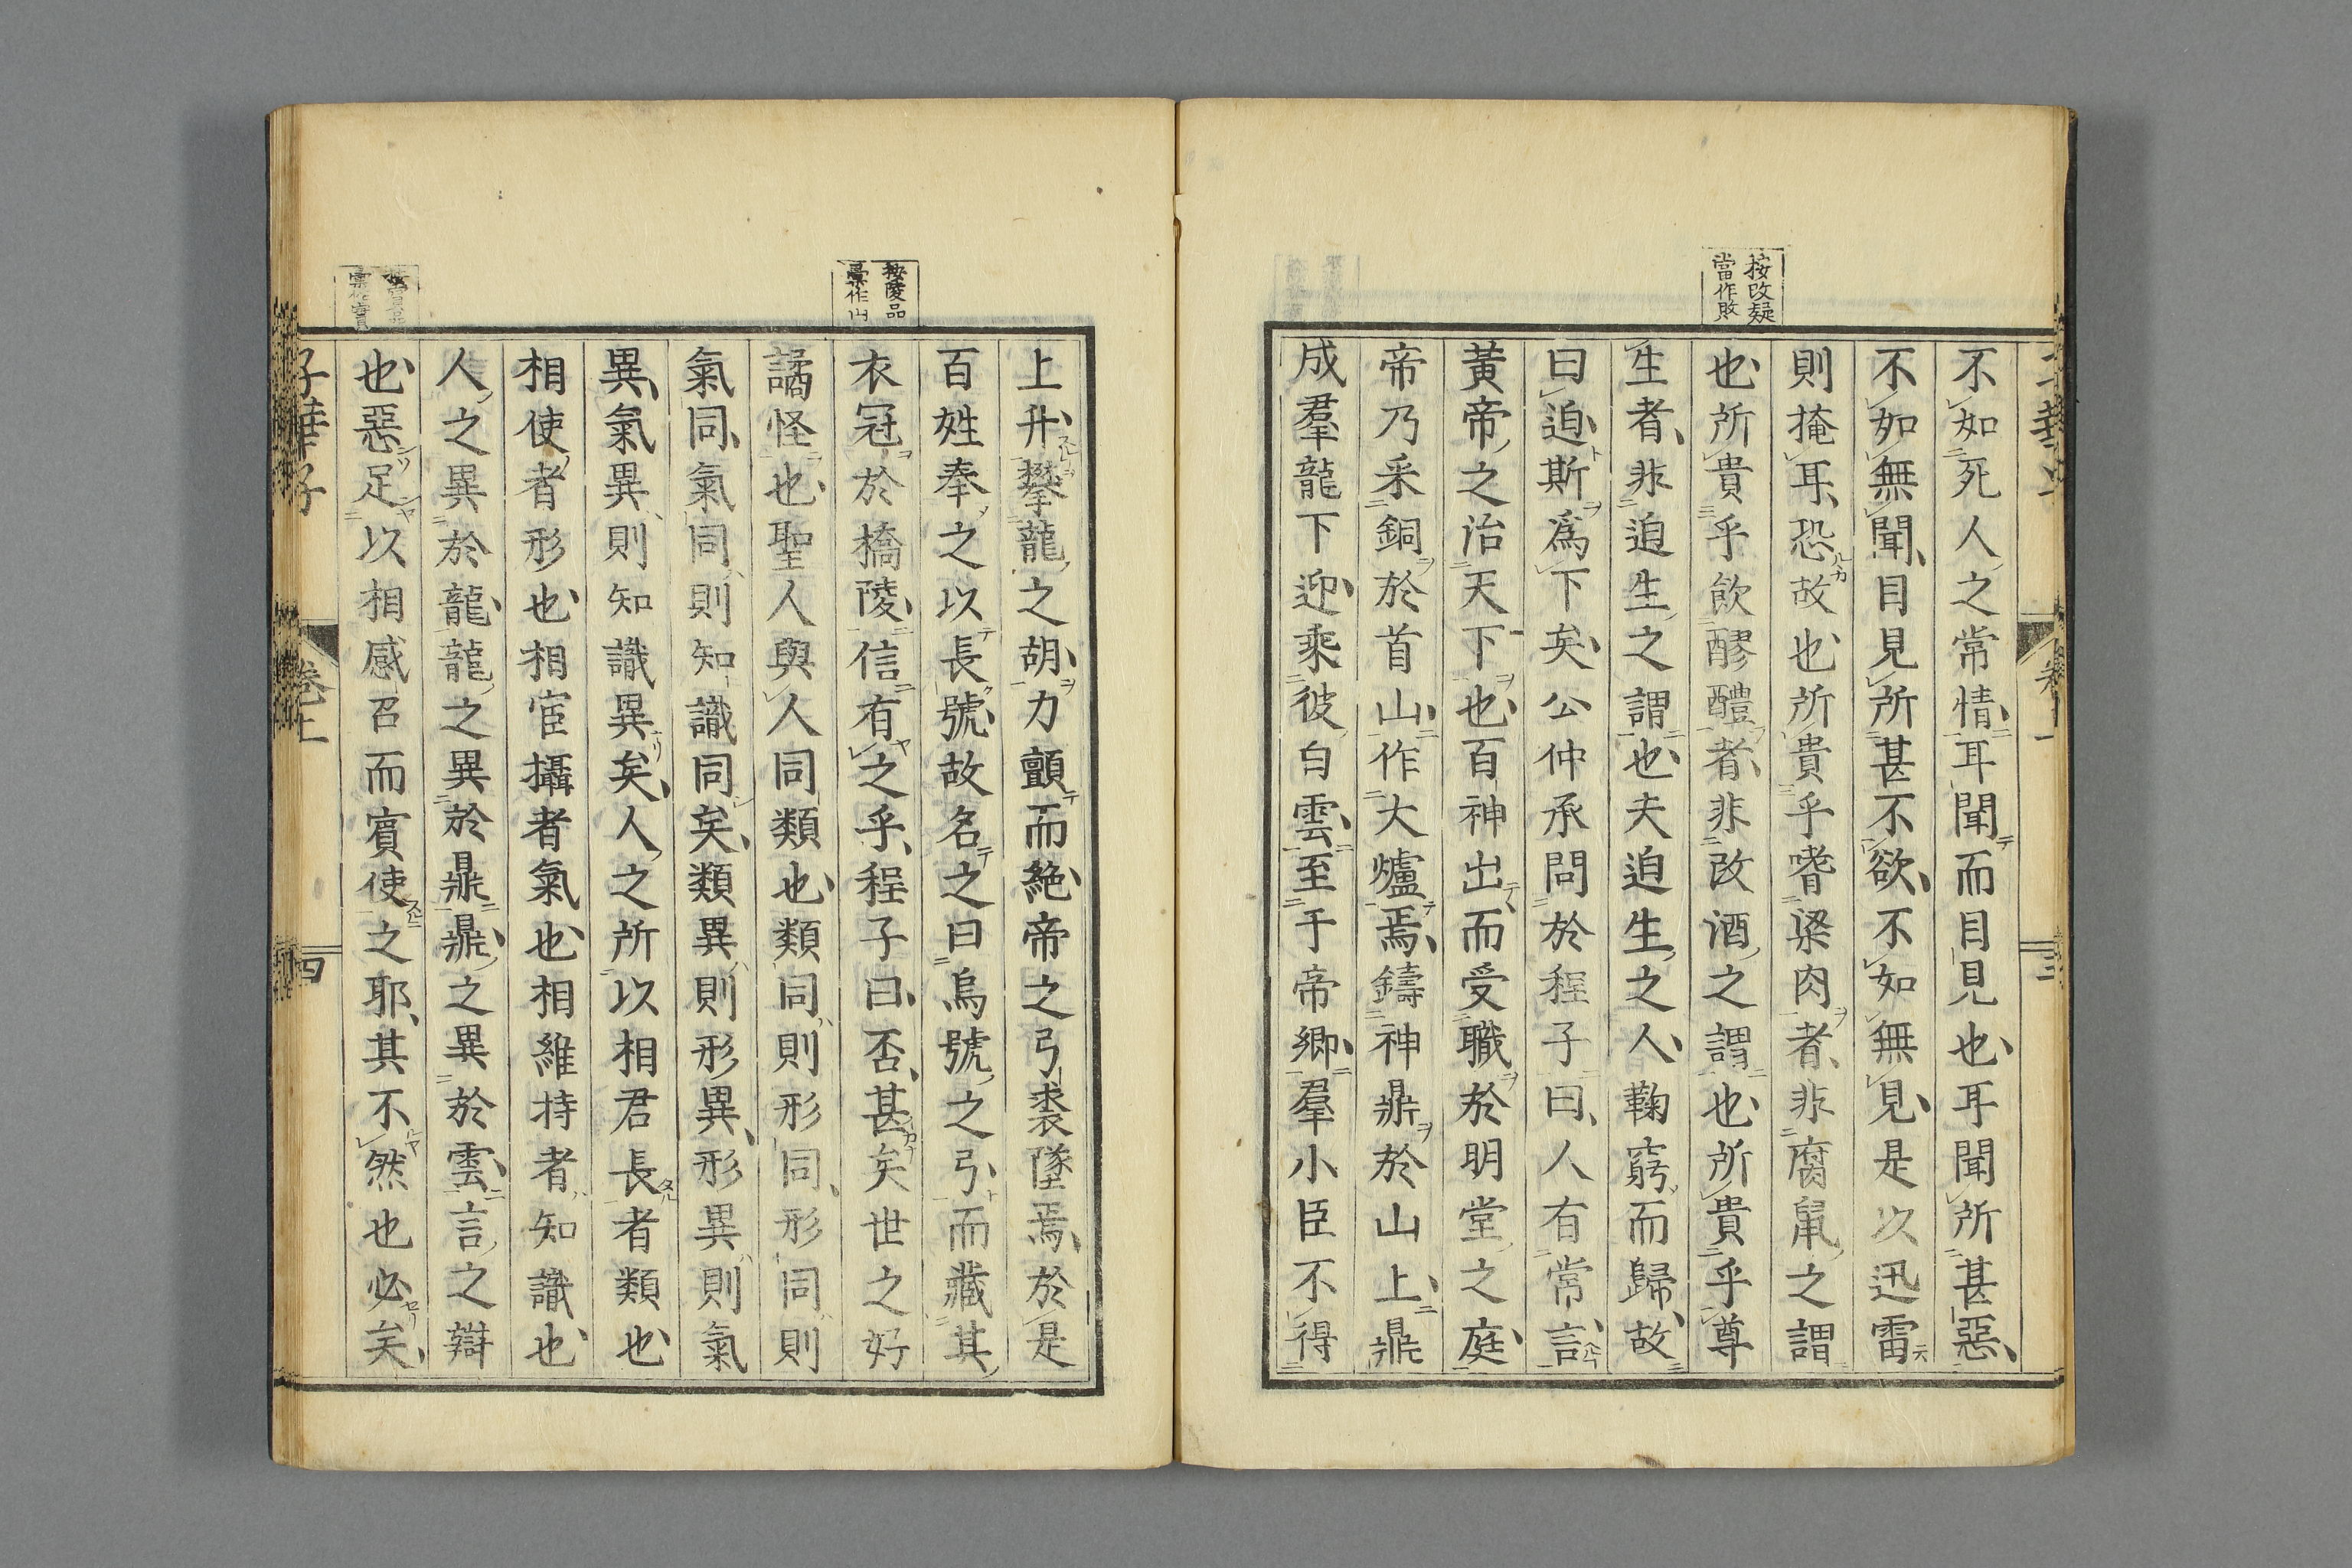 按改疑
當作敗
不如死人之常情耳聞而目見也耳聞所甚惡
不如無聞目見所甚不欲不如無見是以迅雷
則掩耳恐故也所貴乎嗜梁肉者非腐鼠之謂
也所貴乎飲醪醴者非改酒之謂也所貴乎尊
生者非迫生之謂也夫迫生之人鞠窮而歸故
曰迫斯爲下矣公仲承問於程子曰人有常言
黃帝之治天下也百神出而受職於明堂之庭
帝乃采銅於首山作大爐焉鑄神鼎於山上鼎
成羣龍下迎乘彼白雲至于帝鄉羣小臣不得
按陵品
彙作山
上升攀龍之胡力顫而絕帝之弓裘墜焉於是
百姓奉之以長號故名之曰烏號之弓而藏其
衣冠於橋陵信有之乎程子曰否甚矣世之好
譎怪也聖人與人同類也類同則形同形同則
氣同氣同則知識同矣類異則形異形異則氣
異氣異則知識異矣人之所以相君長者類也
相使者形也相宦攝者氣也相維持者知識也
人之異於龍龍之異於鼎鼎之異於雲言之辯
也惡足以相感召而賓使之耶其不然也必矣
子華子
卷上
四